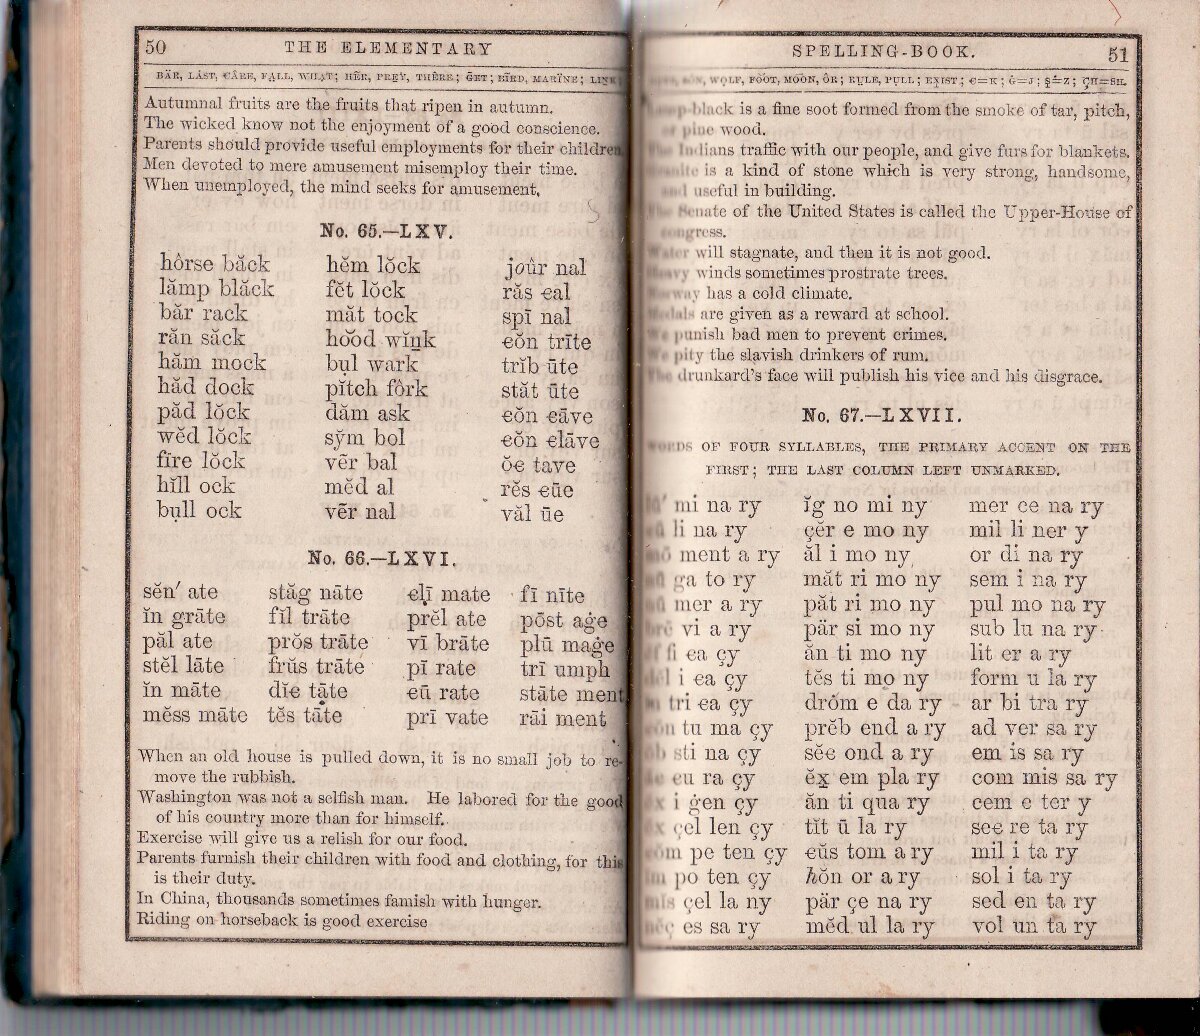 50 THE ELEMENTARY
BÄR, LÅST, ЄÂRE, FA̤LL, WHA̤T; HẼR, PRE̱Y, THÊRE; ḠET; BÏRD, MARÏNE; LIN̲K;
Autumnal fruits are the fruits that ripen in autumn.
The wicked know not the enjoyment of a good conscience.
Parents should provide useful employments for their children.
Men devoted to mere amusement misemploy their time.
When unemployed, the mind seeks for amusement.
No. 65.—LXV.
hôrse băck hĕm lŏck joûr nal
lămp blăck fĕt lŏck răs єal
băr rack măt tock spī nal
răn săck ho͝od wĭn̲k єŏn trīte
hăm mock bụl wark trĭb ūte
hăd dock pĭtch fôrk stăt ūte
păd lŏck dăm ask єŏn єāve
wĕd lŏck sy̆m bol єŏn єlāve
fīre lŏck vẽr bal ŏє tave
hĭll ock mĕd al rĕs єūe
bụll ock vẽr nal văl ūe
No. 66.—LXVI.
sĕn′ ate stăg nāte єlī mate fī nīte
ĭn grāte fĭl trāte prĕl ate pōst aġe
păl ate prŏs trāte vī brāte plū maġe
stĕl lāte frŭs trāte pī rate trī umph
ĭn māte dĭє tāte єū rate stāte ment
mĕss māte tĕs tāte prī vate rāi ment
When an old house is pulled down, it is no small job to re-
move the rubbish.
Washington was not a selfish man. He labored for the good
of his country more than for himself.
Exercise will give us a relish for our food.
Parents furnish their children with food and clothing, for this
is their duty.
In China, thousands sometimes famish with hunger.
Riding on horseback is good exercise
SPELLING-BOOK. 51
WO̱LF, FO͝OT, MO͞ON, ÔR; RṲLE, PṲLL; EX̱IST; Є=K; Ġ=J; Ş=Z; ÇH=SH.
Lamp-black is a fine soot formed from the smoke of tar, pitch,
or pine wood.
The Indians traffic with our people, and give furs for blankets.
Granite is a kind of stone which is very strong, handsome,
and useful in building.
The Senate of the United States is called the Upper-House of
Congress.
Water will stagnate, and then it is not good.
Heavy winds sometimes prostrate trees.
Norway has a cold climate.
Medals are given as a reward at school.
We punish bad men to prevent crimes.
We pity the slavish drinkers of rum.
The drunkard's face will publish his vice and his disgrace.
No. 67.—LXVII.
WORDS OF FOUR SYLLABLES, THE PRIMARY ACCENT ON THE
FIRST; THE LAST COLUMN LEFT UNMARKED.
lū′ mi na ry ĭg no mi ny mer ce na ry
єū li na ry çĕr e mo ny mil li ner y
mō ment a ry ăl i mo ny or di na ry
ga to ry măt ri mo ny sem i na ry
mer a ry păt ri mo ny pul mo na ry
brē vi a ry pär si mo ny sub lu na ry
ĕf fi єa çy ăn ti mo ny lit er a ry
dĕl i єa çy tĕs ti mo ny form u la ry
ĭn tri єa çy drŏm e da ry ar bi tra ry
єŏn tu ma çy prĕb end a ry ad ver sa ry
ŏb sti na çy sĕє ond a ry em is sa ry
єu ra çy ĕx̱ em pla ry com mis sa ry
ĕx i ġen çy ăn ti qua ry cem e ter y
ĕx çel len çy tĭt ū la ry see re ta ry
єŏm pe ten çy єŭs tom a ry mil i ta ry
ĭm po ten çy hŏn or a ry sol i ta ry
mĭs çel la ny pär çe na ry sed en ta ry
nĕç es sa ry mĕd ul la ry vol un ta ry